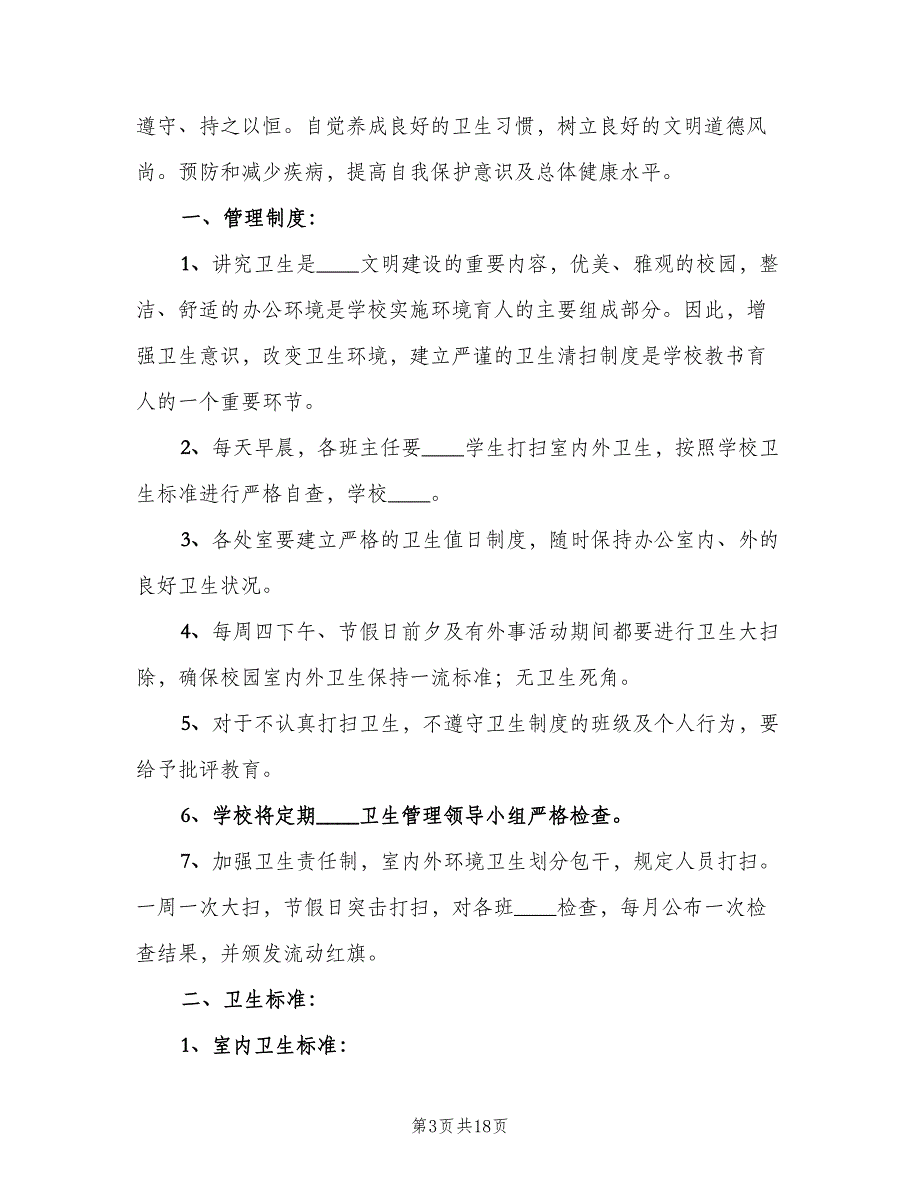 遵守、持之以恒。自觉养成良好的卫生习惯，树立良好的文明道德风
尚。预防和减少疾病，提高自我保护意识及总体健康水平。
一、管理制度：
1、讲究卫生是____文明建设的重要内容，优美、雅观的校园，整
洁、舒适的办公环境是学校实施环境育人的主要组成部分。因此，增
强卫生意识，改变卫生环境，建立严谨的卫生清扫制度是学校教书育
人的一个重要环节。
2、每天早晨，各班主任要____学生打扫室内外卫生，按照学校卫
生标准进行严格自查，学校____。
3、各处室要建立严格的卫生值日制度，随时保持办公室内、外的
良好卫生状况。
4、每周四下午、节假日前夕及有外事活动期间都要进行卫生大扫
除，确保校园室内外卫生保持一流标准；无卫生死角。
5、对于不认真打扫卫生，不遵守卫生制度的班级及个人行为，要
给予批评教育。
6、学校将定期____卫生管理领导小组严格检查。
7、加强卫生责任制，室内外环境卫生划分包干，规定人员打扫。
一周一次大扫，节假日突击打扫，对各班____检查，每月公布一次检
查结果，并颁发流动红旗。
二、卫生标准：
1、室内卫生标准：
第3页共18页